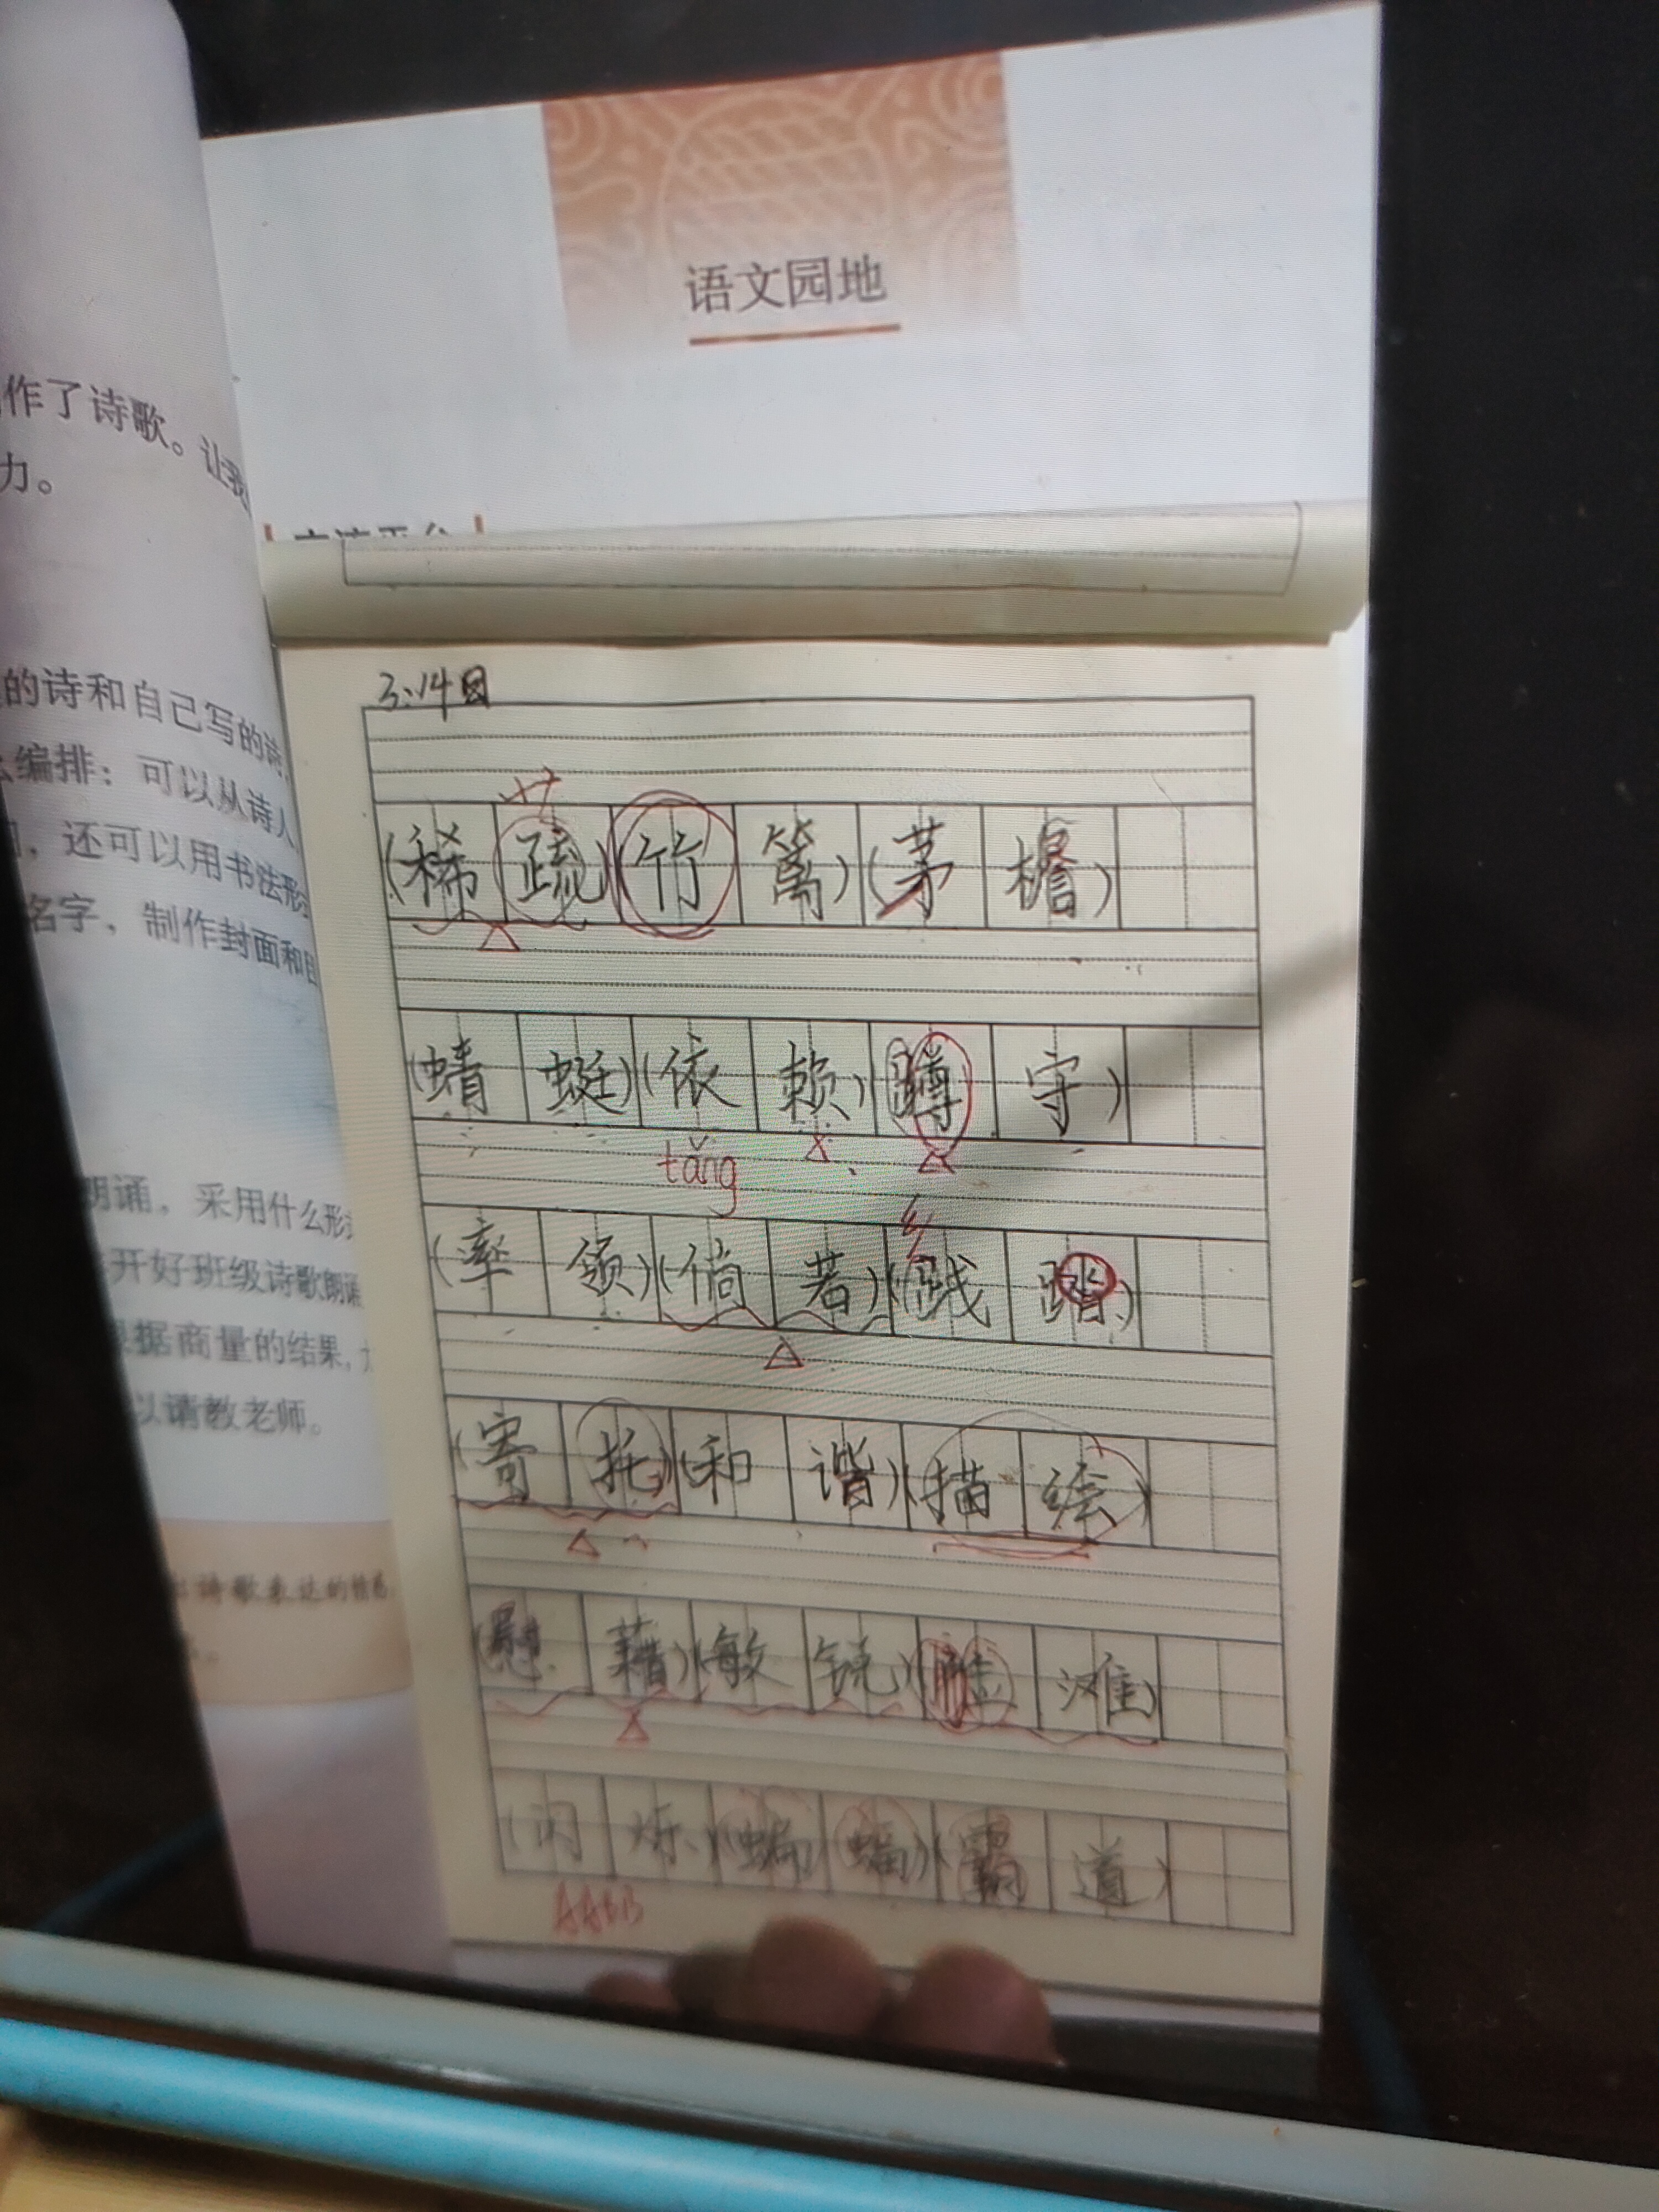 语文园地
作了诗歌。让我
力。
的诗和自己写的诗
编排：可以从诗人
，还可以用书法形
名字，制作封面和
朗诵，采用什么形
开好班级诗歌朗诵
根据商量的结果，
以请教老师。
诗歌表达的情
3.14日
(稀疏)(竹篱)(茅檐)
(蜻蜓)(依赖)(蹲守)
tǎng
(率领)(倘若)(践踏)
(寄托)(和谐)(描绘)
(慰藉)(敏锐)(滩)
(闪烁)(蝙蝠)(霸道)
AABB